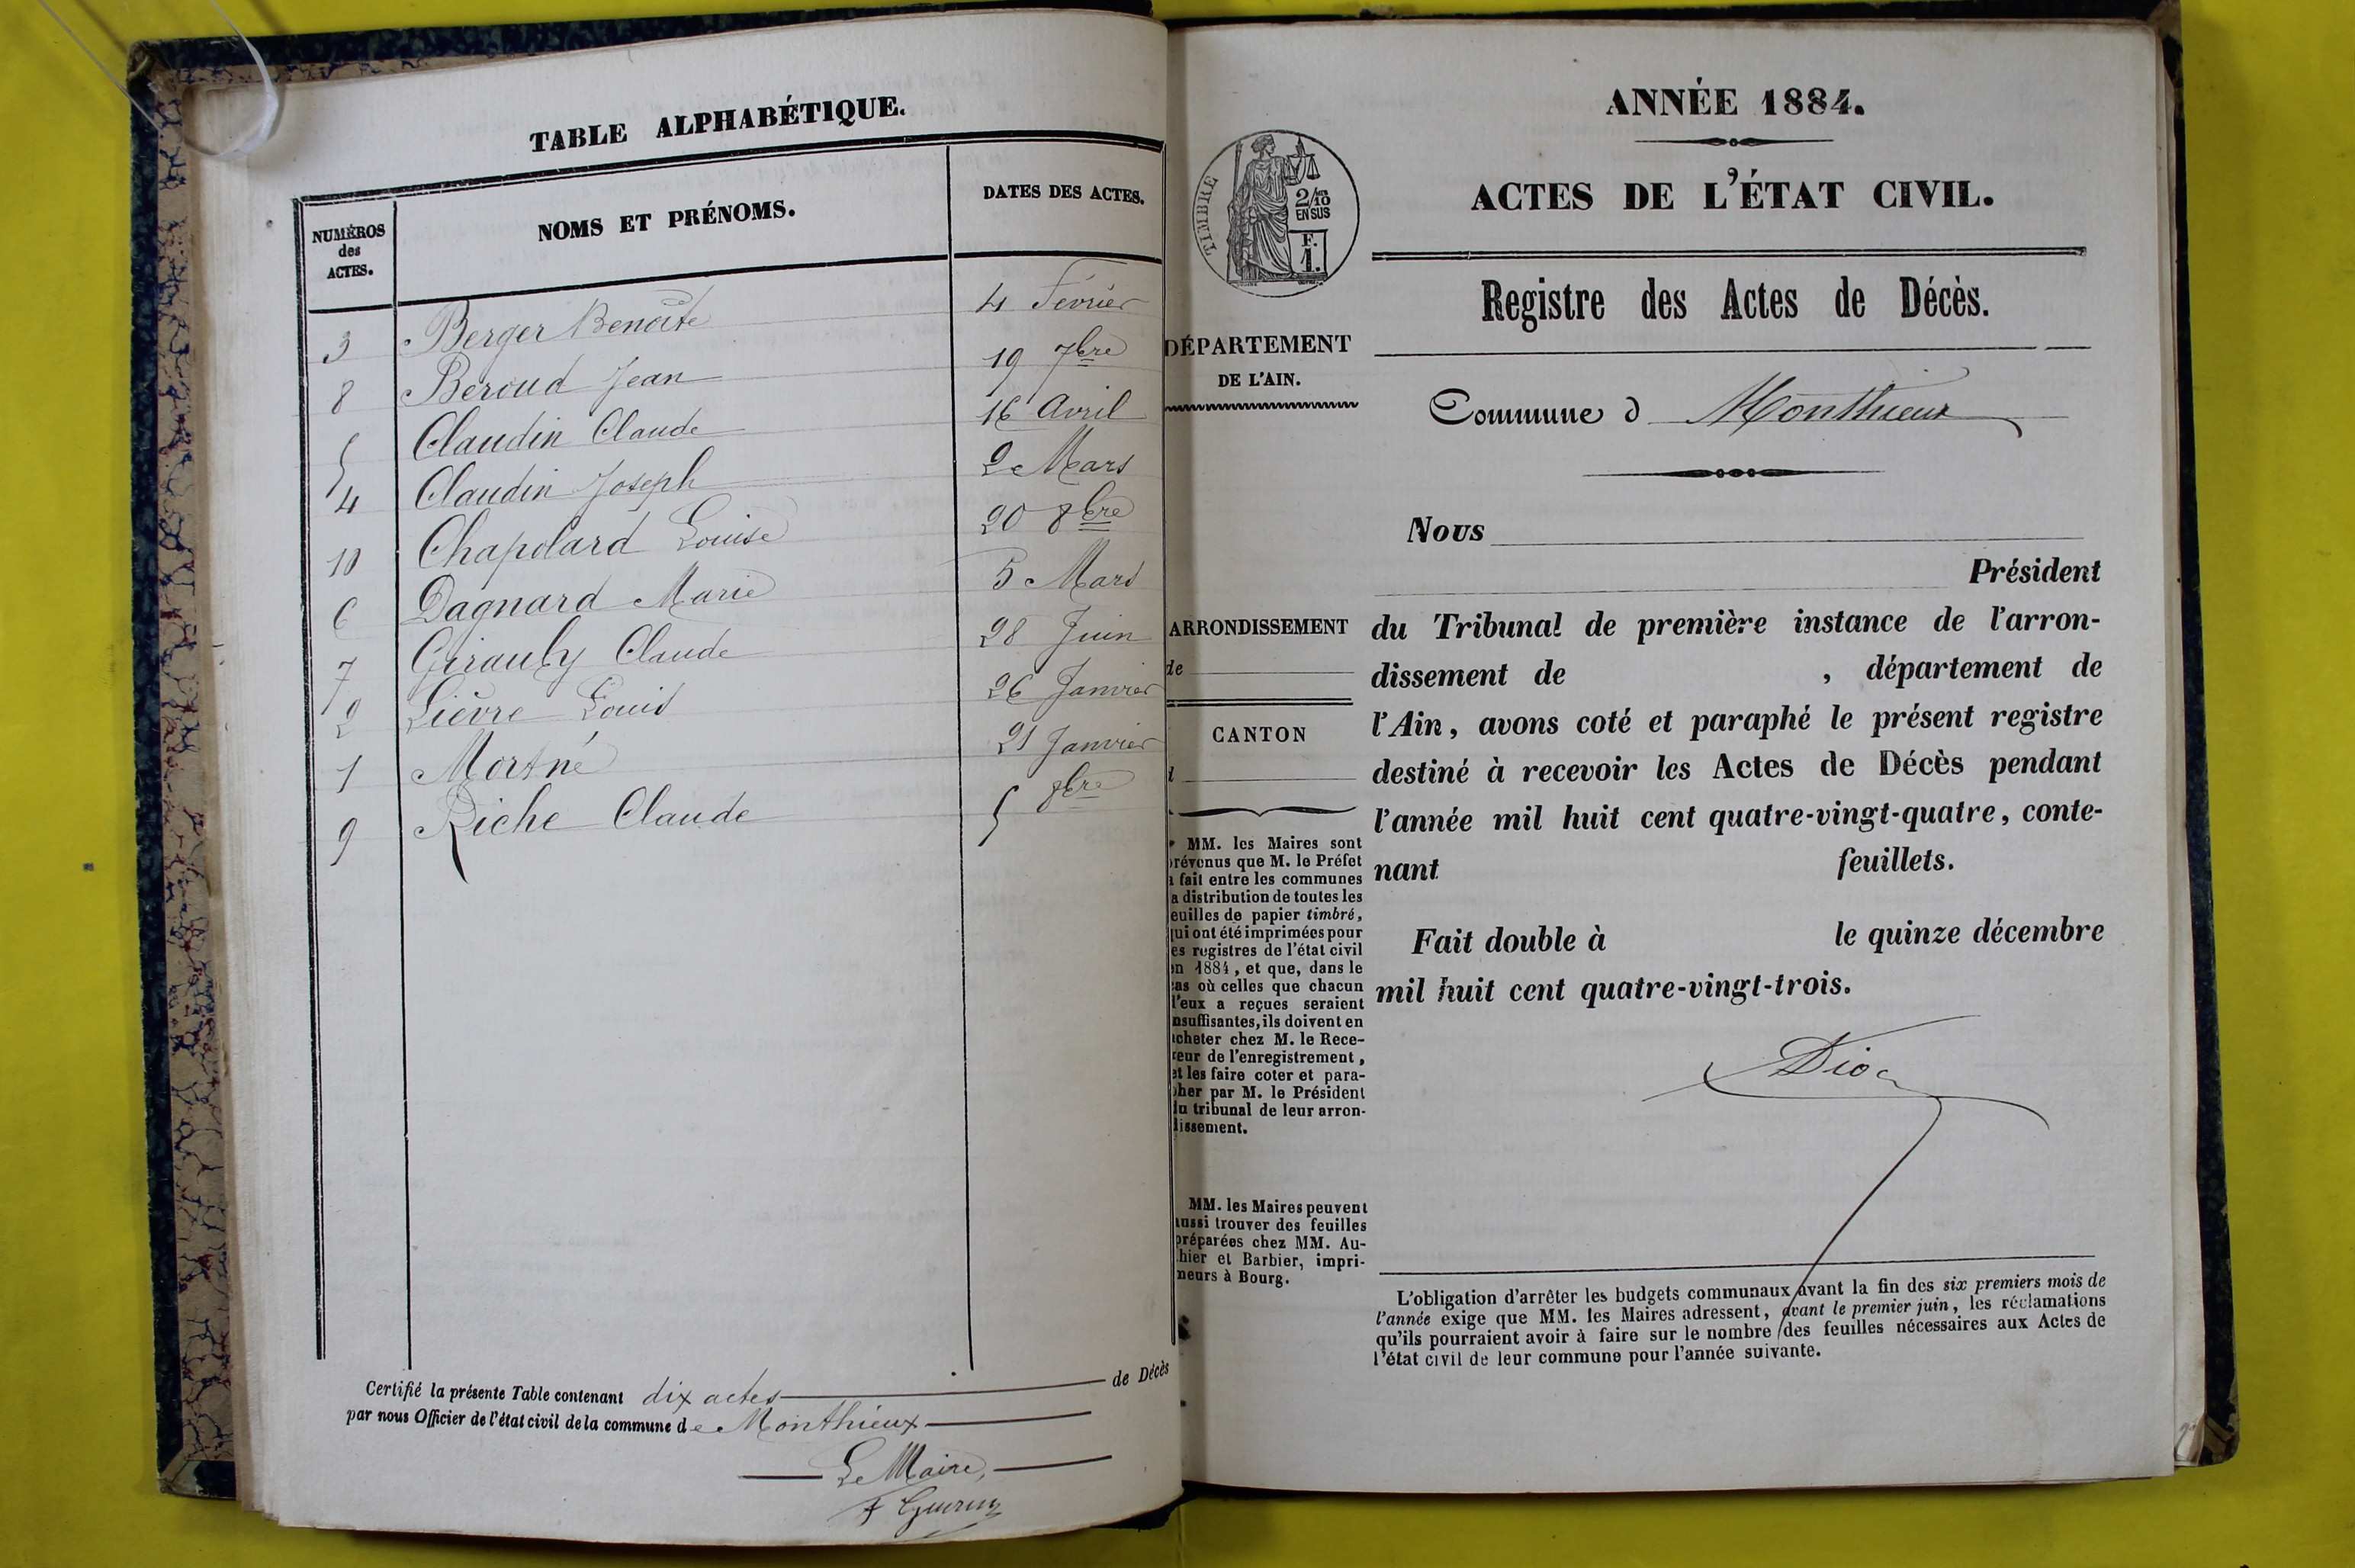 TABLE ALPHABÉTIQUE.
NUMÉROS des ACTES. NOMS ET PRÉNOMS. DATES DES ACTES.
3 Berger Benoîte 4 Février
8 Beroud Jean 19 7bre
5 Claudin Claude 16 Avril
4 Claudin Joseph 2 Mars
10 Chapolard Louise 20 8bre
6 Dagnard Marie 5 Mars
7 Girauly Claude 28 Juin
2 Lièvre Louis 26 Janvier
1 Mortné 21 Janvier
9 Riche Claude 5 8bre
Certifié la présente Table contenant dix actes de Décès
par nous Officier de l'état civil de la commune de Monthieux
Le Maire,
ANNÉE 1884.
ACTES DE L'ÉTAT CIVIL.
TIMBRE
2/10
EN SUS
F.
1.
Registre des Actes de Décès.
DÉPARTEMENT
DE L'AIN.
Commune d Monthieux
Nous
Président
du Tribunal de première instance de l'arron-
dissement de , département de
l'Ain, avons coté et paraphé le présent registre
destiné à recevoir les Actes de Décès pendant
l'année mil huit cent quatre-vingt-quatre, conte-
nant feuillets.
Fait double à le quinze décembre
mil huit cent quatre-vingt-trois.
ARRONDISSEMENT
de
CANTON
d
MM. les Maires sont
prévenus que M. le Préfet
a fait entre les communes
a distribution de toutes les
euilles de papier timbré,
qui ont été imprimées pour
es registres de l'état civil
en 1884, et que, dans le
cas où celles que chacun
l'eux a reçues seraient
nsuffisantes, ils doivent en
acheter chez M. le Rece-
veur de l'enregistrement,
et les faire coter et para-
pher par M. le Président
du tribunal de leur arron-
dissement.
MM. les Maires peuvent
aussi trouver des feuilles
préparées chez MM. Au-
thier et Barbier, impri-
meurs à Bourg.
L'obligation d'arrêter les budgets communaux avant la fin des six premiers mois de
l'année exige que MM. les Maires adressent, avant le premier juin, les réclamations
qu'ils pourraient avoir à faire sur le nombre des feuilles nécessaires aux Actes de
l'état civil de leur commune pour l'année suivante.